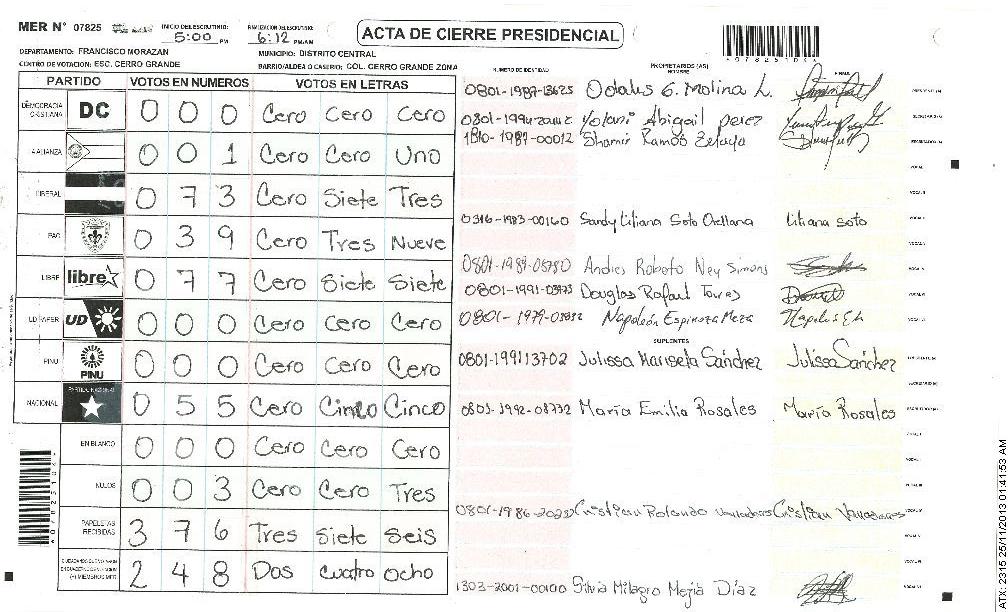 MER N° 07825
INICIO DEL ESCRUTINIO: 5:00 PM
FINALIZACION DEL ESCRUTINIO: 6:12 PM/AM
ACTA DE CIERRE PRESIDENCIAL
DEPARTAMENTO: FRANCISCO MORAZAN
MUNICIPIO: DISTRITO CENTRAL
CENTRO DE VOTACION: ESC. CERRO GRANDE
BARRIO/ALDEA O CASERIO: COL. CERRO GRANDE ZONA
PARTIDO VOTOS EN NUMEROS VOTOS EN LETRAS
DEMOCRACIA CRISTIANA DC 0 0 0 Cero Cero Cero
ALIANZA 0 0 1 Cero Cero Uno
LIBERAL 0 7 3 Cero Siete Tres
PAC 0 3 9 Cero Tres Nueve
LIBRE libre 0 7 7 Cero Siete Siete
UD UD 0 0 0 Cero Cero Cero
PINU PINU 0 0 0 Cero Cero Cero
NACIONAL PARTIDO NACIONAL 0 5 5 Cero Cinco Cinco
EN BLANCO 0 0 0 Cero Cero Cero
NULOS 0 0 3 Cero Cero Tres
PAPELETAS RECIBIDAS 3 7 6 Tres Siete Seis
(+) MIEMBROS MER 2 4 8 Dos cuatro ocho
NUMERO DE IDENTIDAD PROPIETARIOS (AS) NOMBRE FIRMA
0801-1987-13625 Odalis G. Molina L.
Yolani Abigail perez
Shamir Ramos Zelaya
0316-1983-00160 Sandy Liliana Soto Orellana Liliana soto
Andres Roberto Ney Simons
Douglas Rafael Torres
Napoleón Espinoza Meza
SUPLENTES
0801-199113702 Julissa Marisela Sánchez Julissa Sánchez
0801-1992-08732 María Emilia Rosales María Rosales
Cristian Rolando
1303-2001-00100 Silvia Milagro Mejía Díaz
07825104
ATX: 2315 25/11/2013 01:41:53 AM